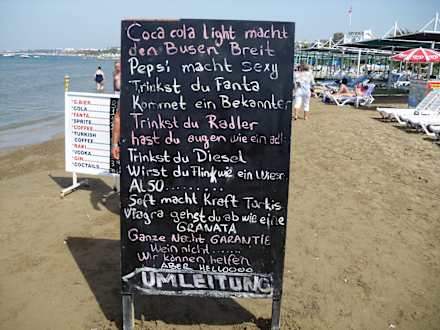 Coca cola Light macht
den Busen Breit
Pepsi macht sexy
Trinkst du Fanta
Kommet ein Bekannter
Trinkst du Radler
hast du augen wie ein adl
Trinkst du Diesel
Wirst du Flink wie ein Wiesel
ALSO..........
Saft macht Kraft Türkis
Viagra gehst du ab wie eine
GRANATA
Ganze Nacht GARANTIE
Wein nicht......
Wir können helfen
ABER HELLOOOO
UMLEITUNG
BIER
COLA
FANTA
SPRITE
COFFEE
TURKISH
COFFEE
RAKI
VODKA
GIN
COCTAILS